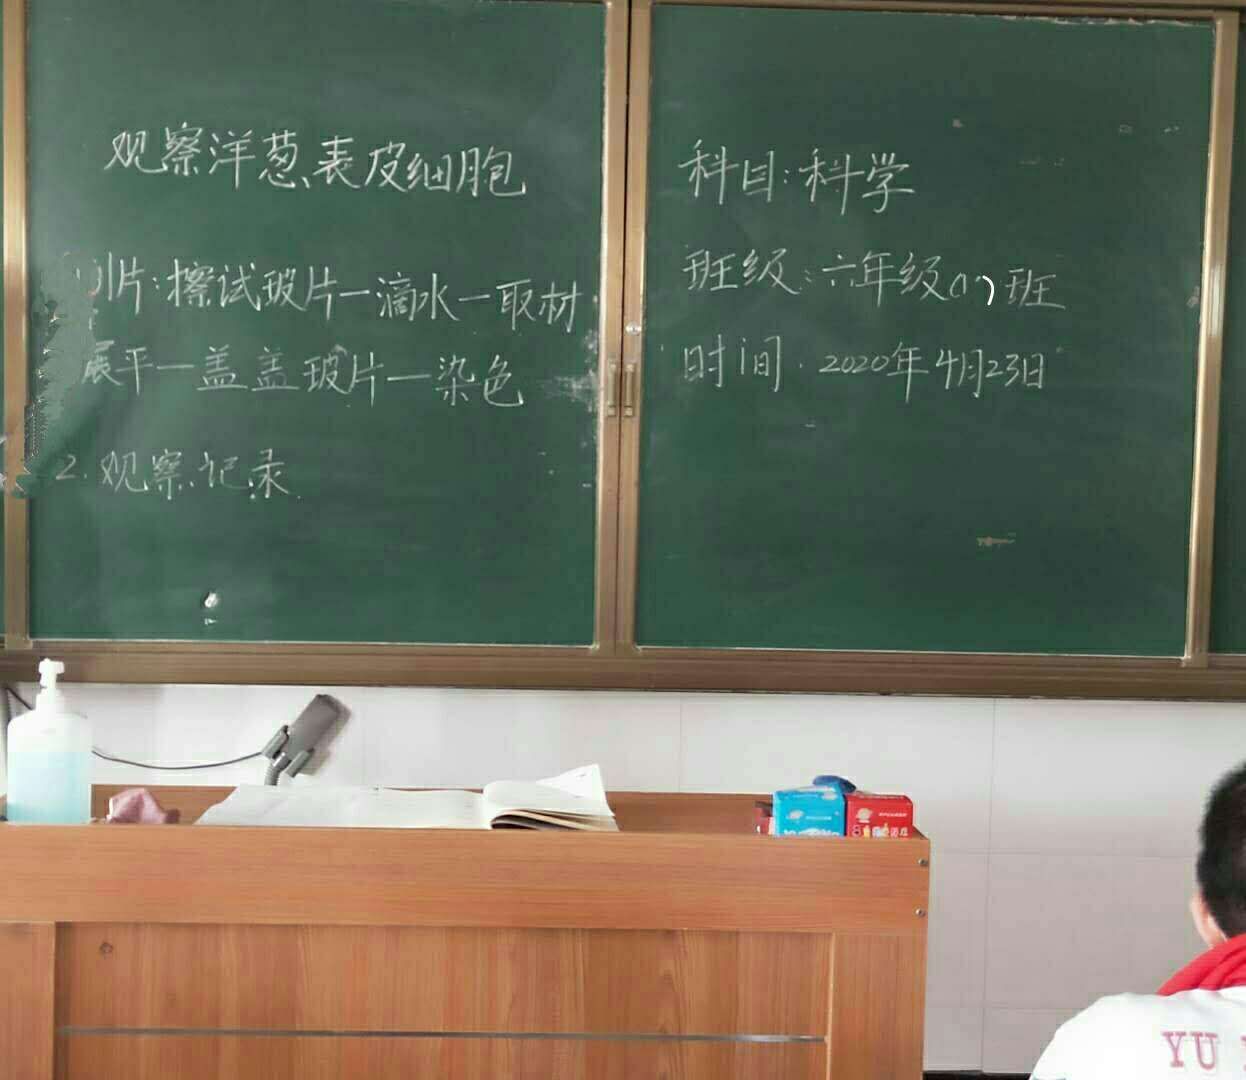 观察洋葱表皮细胞
片:擦试玻片一滴水一取材
展平一盖盖玻片一染色
2.观察记录
科目:科学
班级:六年级(1)班
时间.2020年4月23日
YU